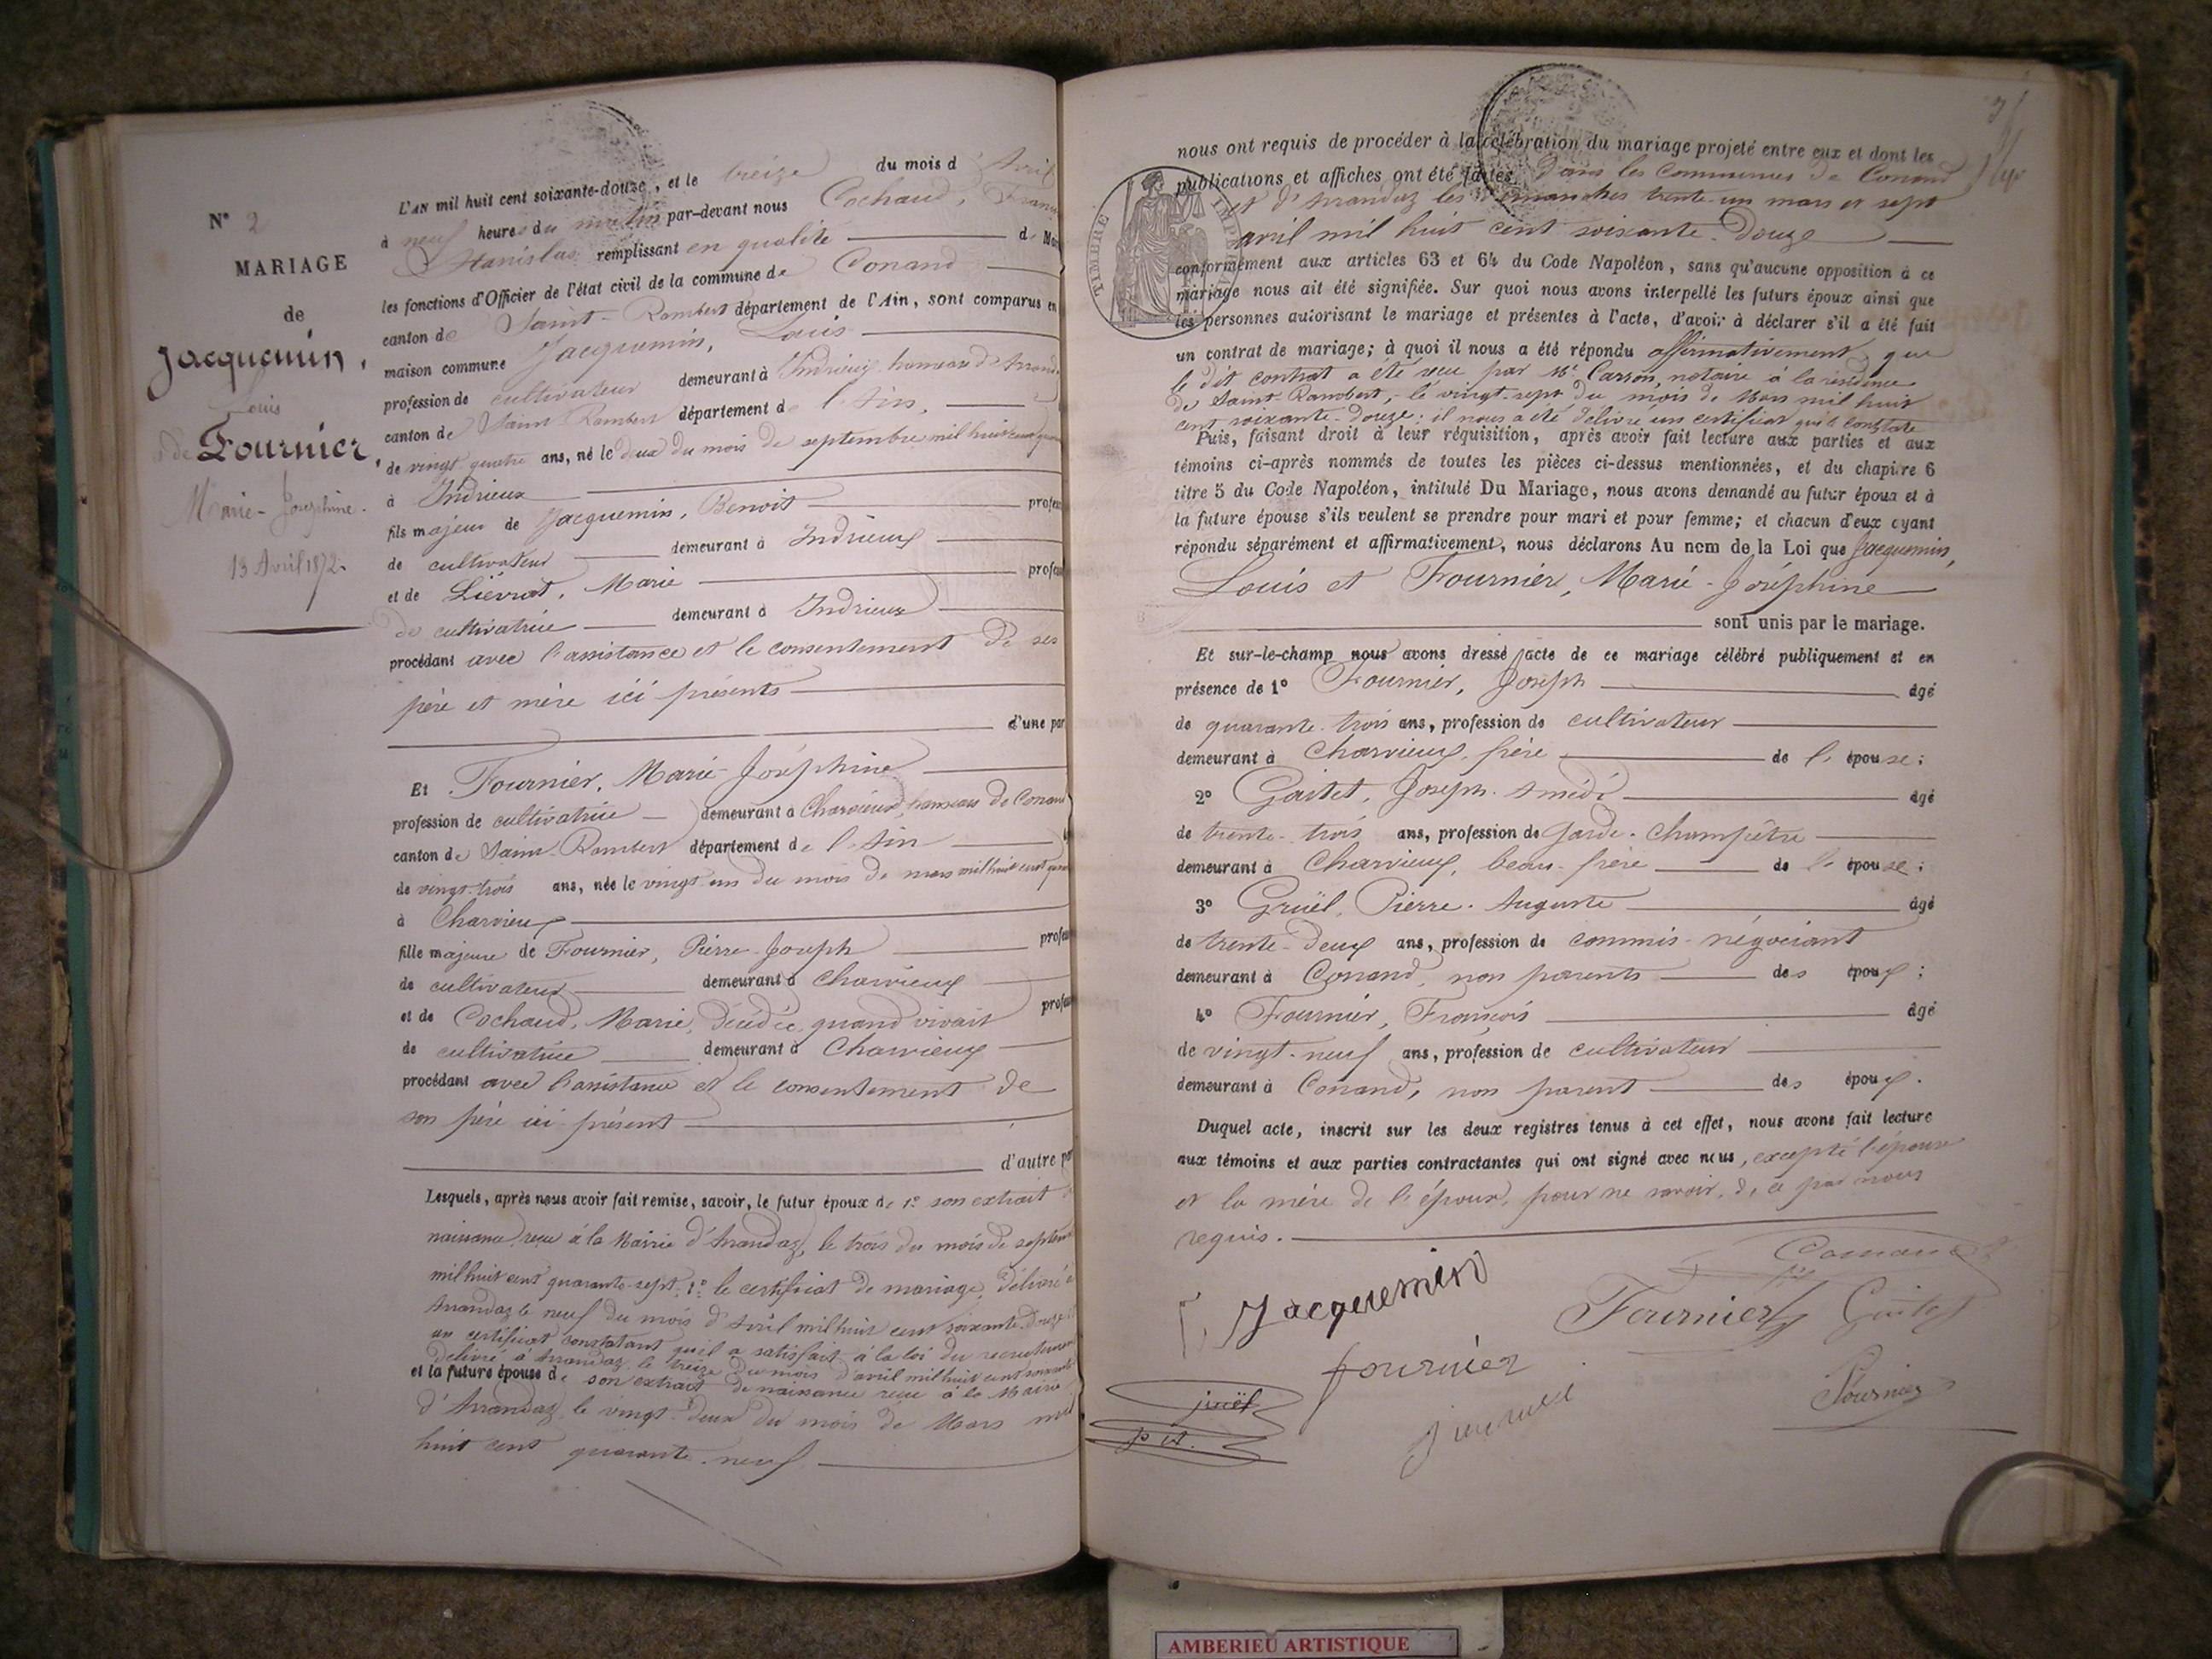 N° 2
MARIAGE
de
Jacquemin,
Louis
& de Fournier,
Marie-Joséphine.
13 Avril 1872.
L'AN mil huit cent soixante-douze, et le treize du mois d'Avril
à neuf heures du matin par-devant nous Cochaud, Franç
Stanislas remplissant en qualité de Ma
les fonctions d'Officier de l'état civil de la commune de Conand
canton de Saint-Rambert département de l'Ain, sont comparus en
maison commune Jacquemin, Louis
profession de cultivateur demeurant à Indrieux, hameau d'Arand
canton de Saint Rambert département de l'Ain,
de vingt quatre ans, né le deux du mois de septembre mil huit cent quar
à Indrieux
fils majeur de Jacquemin, Benoit profes
de cultivateur demeurant à Indrieux
et de Lievrot, Marie profes
de cultivatrice demeurant à Indrieux
procédant avec l'assistance et le consentement de ses
père et mère ici présents
d'une par
Et Fournier, Marie-Joséphine
profession de cultivatrice demeurant à Charvieux, hameau de Conand
canton de Saint-Rambert département de l'Ain
de vingt-trois ans, née le vingt-un du mois de mars mil huit cent quar
à Charvieux
fille majeure de Fournier, Pierre-Joseph profes
de cultivateur demeurant à Charvieux
et de Cochaud, Marie, décédée, quand vivait profes
de cultivatrice demeurant à Charvieux
procédant avec l'assistance et le consentement de
son père ici présent
d'autre par
Lesquels, après nous avoir fait remise, savoir, le futur époux de 1° son extrait
naissance reçu à la Mairie d'Arandaz, le trois du mois de septem
mil huit cent quarante-sept, 2° le certificat de mariage, délivré à
Arandaz le neuf du mois d'Avril mil huit cent soixante-douze
un certificat constatant qu'il a satisfait à la loi du recrutement
délivré à Arandaz le treize du mois d'avril mil huit cent soixante
et la future épouse de son extrait de naissance reçu à la Mairie
d'Arandaz, le vingt-deux du mois de Mars mil
huit cent quarante-neuf
nous ont requis de procéder à la célébration du mariage projeté entre eux et dont les
publications et affiches ont été faites dans les Communes de Conand
et d'Arandaz les dimanches trente-un mars et sept
avril mil huit cent soixante-douze
TIMBRE IMPERIAL
conformément aux articles 63 et 64 du Code Napoléon, sans qu'aucune opposition à ce
mariage nous ait été signifiée. Sur quoi nous avons interpellé les futurs époux ainsi que
les personnes autorisant le mariage et présentes à l'acte, d'avoir à déclarer s'il a été fait
un contrat de mariage; à quoi il nous a été répondu affirmativement, que
le dit contrat a été reçu par Me Carron, notaire à la résidence
de Saint-Rambert, le vingt-sept du mois de Mars mil huit
cent soixante-douze; il nous a été délivré un certificat qui le constate
Puis, faisant droit à leur réquisition, après avoir fait lecture aux parties et aux
témoins ci-après nommés de toutes les pièces ci-dessus mentionnées, et du chapitre 6
titre 5 du Code Napoléon, intitulé Du Mariage, nous avons demandé au futur époux et à
la future épouse s'ils veulent se prendre pour mari et pour femme; et chacun d'eux ayant
répondu séparément et affirmativement, nous déclarons Au nom de la Loi que Jacquemin,
Louis et Fournier, Marie-Joséphine
sont unis par le mariage.
Et sur-le-champ nous avons dressé acte de ce mariage célébré publiquement et en
présence de 1° Fournier, Joseph âgé
de quarante-trois ans, profession de cultivateur
demeurant à Charvieux, frère de l'épouse;
2° Gaitet, Joseph-Amédé âgé
de trente-trois ans, profession de Garde-Champêtre
demeurant à Charvieux, beau-frère de l'épouse;
3° Gruël, Pierre-Auguste âgé
de trente-deux ans, profession de commis-négociant
demeurant à Conand, non parents des époux;
4° Fournier, François âgé
de vingt-neuf ans, profession de cultivateur
demeurant à Conand, non parent des époux.
Duquel acte, inscrit sur les deux registres tenus à cet effet, nous avons fait lecture
aux témoins et aux parties contractantes qui ont signé avec nous, excepté l'épouse
et la mère de l'époux, pour ne savoir, de ce par nous
requis.
Jacquemin
Fournier
Gaitet
fournier
Fournier
AMBERIEU ARTISTIQUE